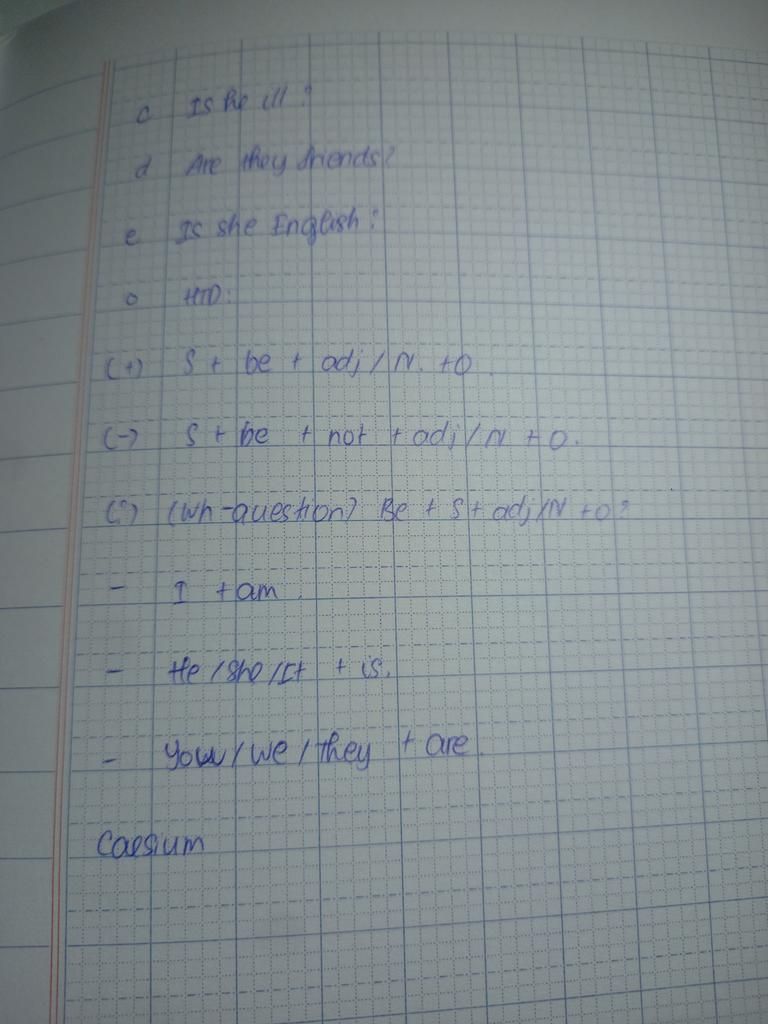 c Is he ill?
d Are they friends?
e Is she English?
o HTD:
(+) S + be + adj / N. + O.
(-) S + be + not + adj / N + O.
(?) (Wh-question) Be + S + adj/N + O?
- I + am.
- He / She / It + is.
- You / We / They + are.
Caesium